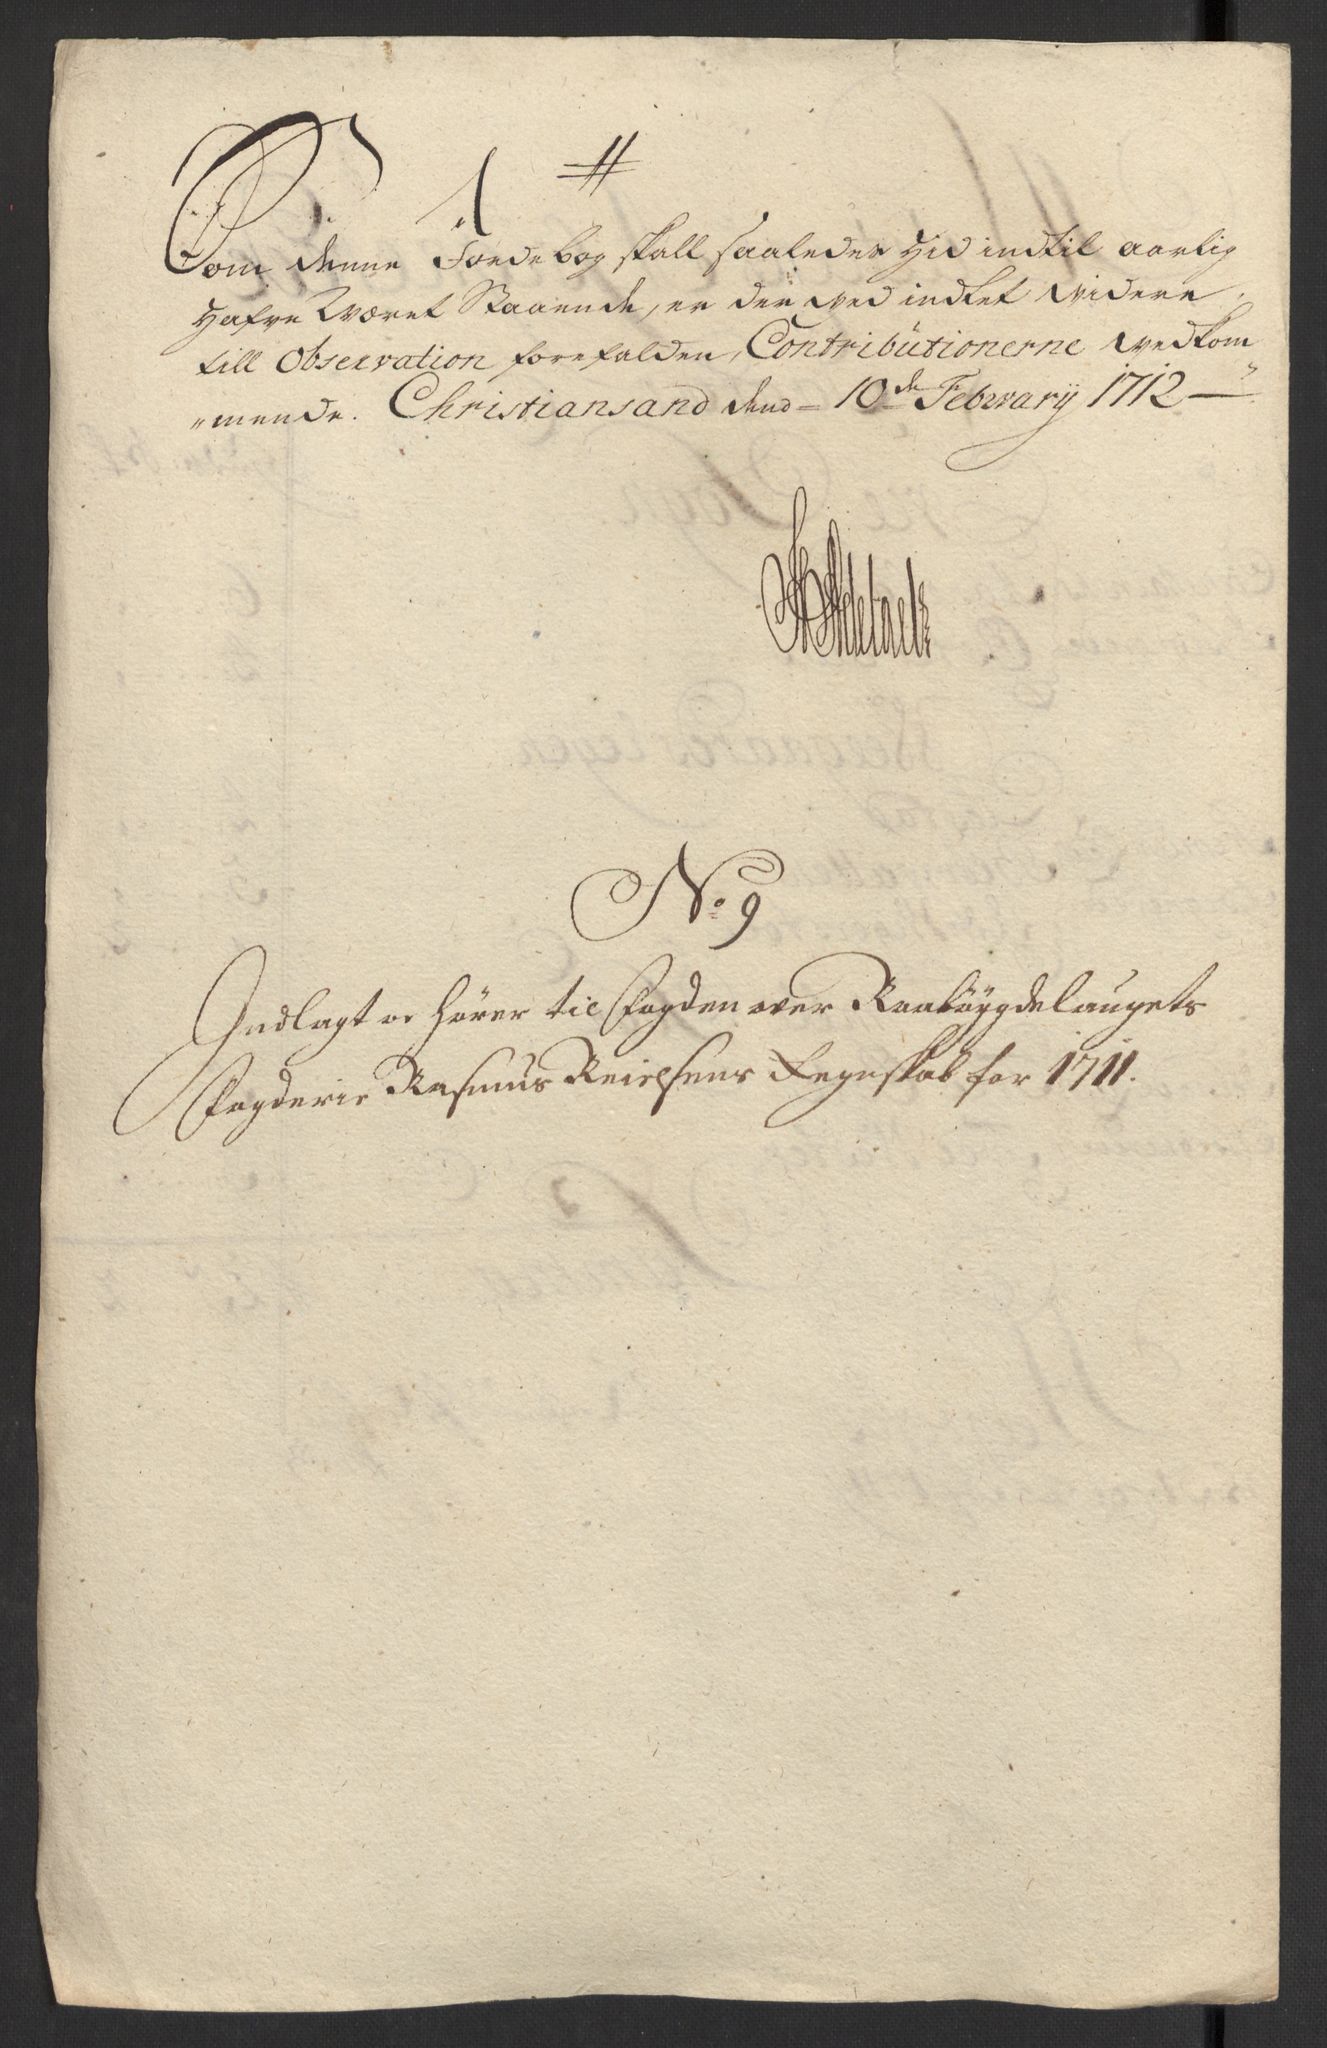 Som denne Jordebog skall saaledes hid indtil aarlig
hafve Været Staaende, er der ved indtet videre
till Observation forefalden, Contributionerne vedkom
"mende. Christiansand dend - 10de Februarij 1712 -
No 9
Indlagt oc hörer til Fogden over Raaböygdelaugets
Fogderie Rasmus Reichsens Regnskab for 1711.